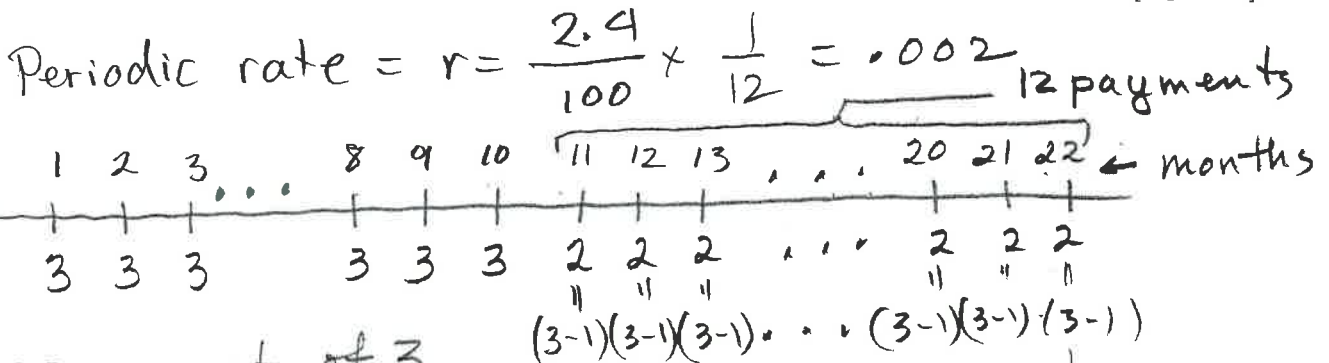 Periodic rate = r = 2.4/100 × 1/12 = .002
12 payments
1 2 3 ... 8 9 10 11 12 13 ... 20 21 22 ← months
3 3 3 3 3 3 2 2 2 ... 2 2 2
" " " " " "
(3-1)(3-1)(3-1) ... (3-1)(3-1)(3-1)
of 3